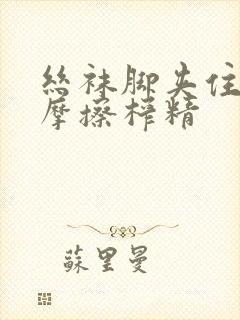 丝袜脚夹住
摩擦榨精
苏里曼